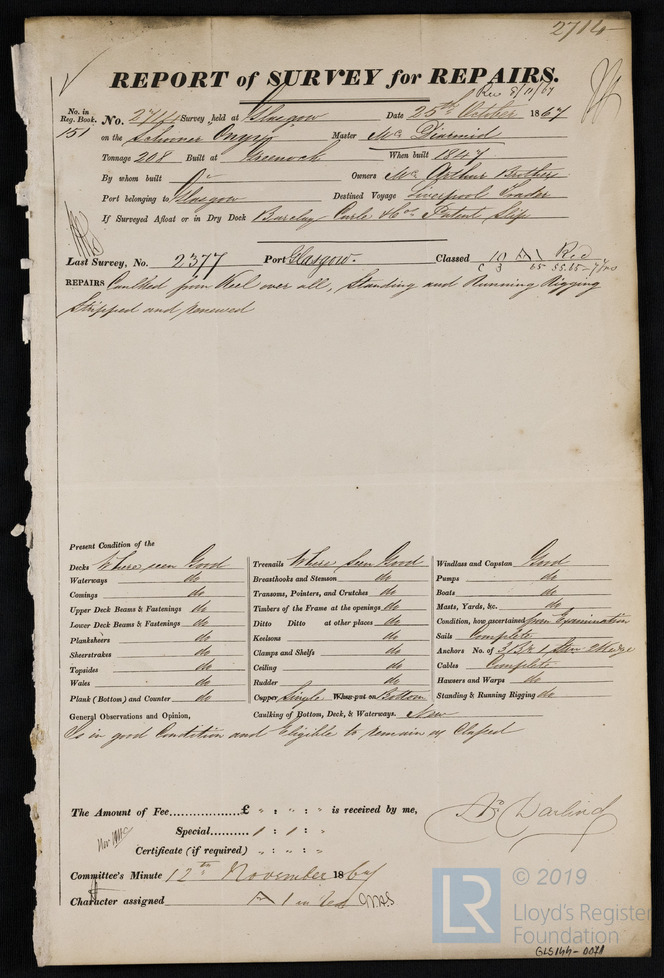 2714
REPORT of SURVEY for REPAIRS.
Rec 8/11/67
No. in Reg. Book. No. 2714 Survey held at Glasgow Date 25th October 1867
151 on the Schooner Onyx Master Mc Diarmid
Tonnage 208 Built at Greenock When built 1847
By whom built Owners Mc Arthur Brothers
Port belonging to Glasgow Destined Voyage Liverpool Trader
If Surveyed Afloat or in Dry Dock Barclay Curle & Cos Patent Slip
Last Survey, No. 2377 Port Glasgow. Classed 10 A1 Red
REPAIRS Caulked from Keel over all, Standing and Running Rigging
Stripped and renewed
Present Condition of the
Decks Where seen Good Treenails Where Seen Good Windlass and Capstan Good
Waterways do Breasthooks and Stemson do Pumps do
Comings do Transoms, Pointers, and Crutches do Boats do
Upper Deck Beams & Fastenings do Timbers of the Frame at the openings do Masts, Yards, &c. do
Lower Deck Beams & Fastenings do Ditto Ditto at other places do Condition, how ascertained from Examination
Planksheers do Keelsons do Sails Complete
Sheerstrakes do Clamps and Shelfs do Anchors No. of
Topsides do Ceiling do Cables Complete
Wales do Rudder do Hawsers and Warps do
Plank (Bottom) and Counter do Copper Single When put on Bottom Standing & Running Rigging do
General Observations and Opinion, Caulking of Bottom, Deck, & Waterways. New
Is in good Condition and Eligible to remain as Classed
The Amount of Fee..................£ " : " : " is received by me,
Special.......... 1 : 1 : "
Jas Darling
Certificate (if required) " : " : "
Committee's Minute 12th November 1867
Character assigned A 1 in red
© 2019
LR
Lloyd's Register
Foundation
GLS144-0071